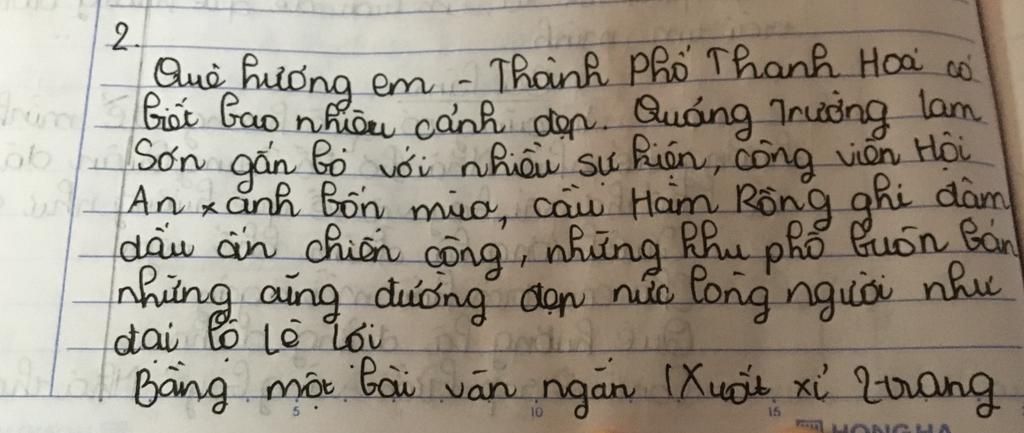 2.
Quê hương em - Thành Phố Thanh Hoá có
biết bao nhiêu cảnh đẹp. Quảng Trường Lam
Sơn gắn bó với nhiều sự kiện, công viên Hội
An xanh bốn mùa, cầu Hàm Rồng ghi đậm
dấu ấn chiến công, những khu phố buôn bán
những cung đường đẹp nức lòng người như
đại lộ Lê Lợi
Bằng một bài văn ngắn (Xuất xỉ 2 trang
5 10 15
HONG HA